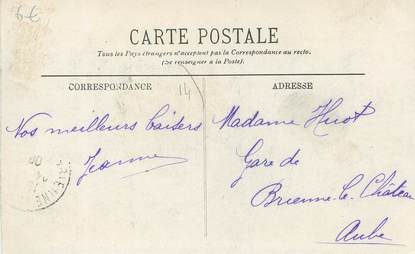 6€
CARTE POSTALE
Tous les Pays étrangers n'acceptent pas la Correspondance au recto.
(Se renseigner à la Poste).
CORRESPONDANCE
ADRESSE
14
Nos meilleurs baisers
Jeanne
Madame Huot
Gare de
Brienne-le-Château
Aube